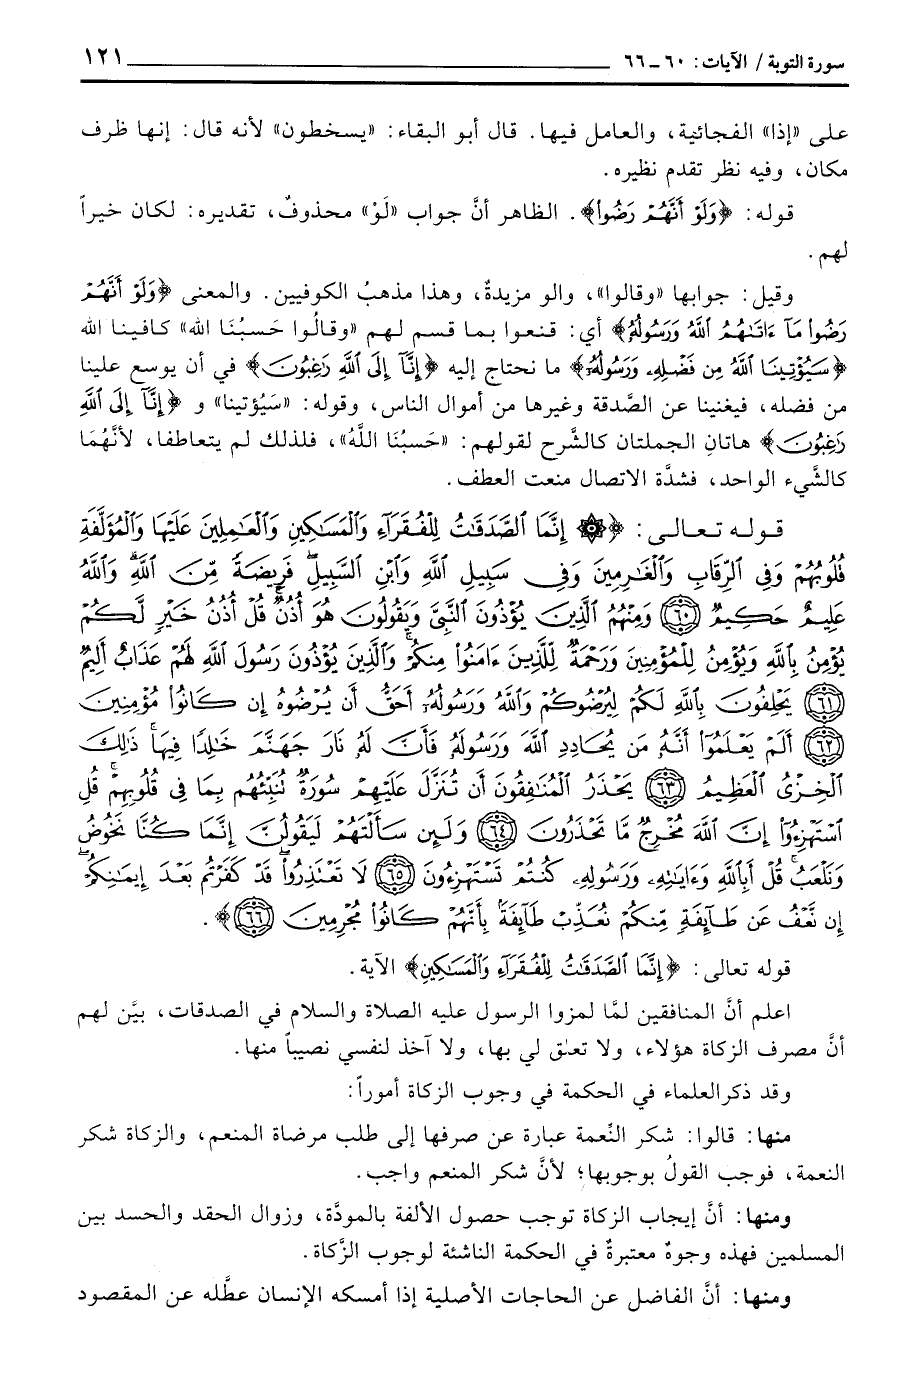 سورة التوبة / الآيات: ٦٠ ـ ٦٦ ١٢١
على «إذا» الفجائية، والعامل فيها. قال أبو البقاء: «يسخطون» لأنه قال: إنها ظرف
مكان، وفيه نظر تقدم نظيره.
قوله: ﴿وَلَوْ أَنَّهُمْ رَضُوا﴾. الظاهر أنَّ جواب «لَوْ» محذوفٌ، تقديره: لكان خيراً
لهم.
وقيل: جوابها «وقالوا»، والو مزيدةٌ، وهذا مذهبُ الكوفيين. والمعنى ﴿وَلَوْ أَنَّهُمْ
رَضُوا مَآ ءَاتَىٰهُمُ ٱللَّهُ وَرَسُولُهُ﴾ أي: قنعوا بما قسم لهم «وقالُوا حَسبُنَا الله» كافينا الله
﴿سَيُؤْتِينَا ٱللَّهُ مِن فَضْلِهِۦ وَرَسُولُهُۥٓ﴾ ما نحتاج إليه ﴿إِنَّآ إِلَى ٱللَّهِ رَٰغِبُونَ﴾ في أن يوسع علينا
من فضله، فيغنينا عن الصَّدقة وغيرها من أموال الناس، وقوله: «سَيُؤتينا» و ﴿إِنَّآ إِلَى ٱللَّهِ
رَٰغِبُونَ﴾ هاتانِ الجملتان كالشَّرح لقولهم: «حَسبُنَا اللَّهُ»، فلذلك لم يتعاطفا، لأنَّهُمَا
كالشَّيء الواحد، فشدَّة الاتصال منعت العطف.
قوله تعالى: ﴿۞ إِنَّمَا ٱلصَّدَقَٰتُ لِلْفُقَرَآءِ وَٱلْمَسَٰكِينِ وَٱلْعَٰمِلِينَ عَلَيْهَا وَٱلْمُؤَلَّفَةِ
قُلُوبُهُمْ وَفِى ٱلرِّقَابِ وَٱلْغَٰرِمِينَ وَفِى سَبِيلِ ٱللَّهِ وَٱبْنِ ٱلسَّبِيلِ ۖ فَرِيضَةً مِّنَ ٱللَّهِ ۗ وَٱللَّهُ
عَلِيمٌ حَكِيمٌ ﴿٦٠﴾ وَمِنْهُمُ ٱلَّذِينَ يُؤْذُونَ ٱلنَّبِىَّ وَيَقُولُونَ هُوَ أُذُنٌ ۚ قُلْ أُذُنُ خَيْرٍ لَّكُمْ
يُؤْمِنُ بِٱللَّهِ وَيُؤْمِنُ لِلْمُؤْمِنِينَ وَرَحْمَةٌ لِّلَّذِينَ ءَامَنُوا۟ مِنكُمْ ۚ وَٱلَّذِينَ يُؤْذُونَ رَسُولَ ٱللَّهِ لَهُمْ عَذَابٌ أَلِيمٌ
﴿٦١﴾ يَحْلِفُونَ بِٱللَّهِ لَكُمْ لِيُرْضُوكُمْ وَٱللَّهُ وَرَسُولُهُۥٓ أَحَقُّ أَن يُرْضُوهُ إِن كَانُوا۟ مُؤْمِنِينَ
﴿٦٢﴾ أَلَمْ يَعْلَمُوٓا۟ أَنَّهُۥ مَن يُحَادِدِ ٱللَّهَ وَرَسُولَهُۥ فَأَنَّ لَهُۥ نَارَ جَهَنَّمَ خَٰلِدًا فِيهَا ۚ ذَٰلِكَ
ٱلْخِزْىُ ٱلْعَظِيمُ ﴿٦٣﴾ يَحْذَرُ ٱلْمُنَٰفِقُونَ أَن تُنَزَّلَ عَلَيْهِمْ سُورَةٌ تُنَبِّئُهُم بِمَا فِى قُلُوبِهِمْ ۚ قُلِ
ٱسْتَهْزِءُوٓا۟ إِنَّ ٱللَّهَ مُخْرِجٌ مَّا تَحْذَرُونَ ﴿٦٤﴾ وَلَئِن سَأَلْتَهُمْ لَيَقُولُنَّ إِنَّمَا كُنَّا نَخُوضُ
وَنَلْعَبُ ۚ قُلْ أَبِٱللَّهِ وَءَايَٰتِهِۦ وَرَسُولِهِۦ كُنتُمْ تَسْتَهْزِءُونَ ﴿٦٥﴾ لَا تَعْتَذِرُوا۟ قَدْ كَفَرْتُم بَعْدَ إِيمَٰنِكُمْ ۚ
إِن نَّعْفُ عَن طَآئِفَةٍ مِّنكُمْ نُعَذِّبْ طَآئِفَةًۢ بِأَنَّهُمْ كَانُوا۟ مُجْرِمِينَ ﴿٦٦﴾﴾.
قوله تعالى: ﴿إِنَّمَا ٱلصَّدَقَٰتُ لِلْفُقَرَآءِ وَٱلْمَسَٰكِينِ﴾ الآية.
اعلم أنَّ المنافقين لمَّا لمزوا الرسول عليه الصلاة والسلام في الصدقات، بيَّن لهم
أنَّ مصرف الزكاة هؤلاء، ولا تعلق لي بها، ولا آخذ لنفسي نصيباً منها.
وقد ذكرالعلماء في الحكمة في وجوب الزكاة أموراً:
منها: قالوا: شكر النِّعمة عبارة عن صرفها إلى طلب مرضاة المنعم، والزكاة شكر
النعمة، فوجب القولُ بوجوبها؛ لأنَّ شكر المنعم واجب.
ومنها: أنَّ إيجاب الزكاة توجب حصول الألفة بالمودَّة، وزوال الحقد والحسد بين
المسلمين فهذه وجوهٌ معتبرةٌ في الحكمة الناشئة لوجوب الزَّكاة.
ومنها: أنَّ الفاضل عن الحاجات الأصلية إذا أمسكه الإنسان عطَّله عن المقصود